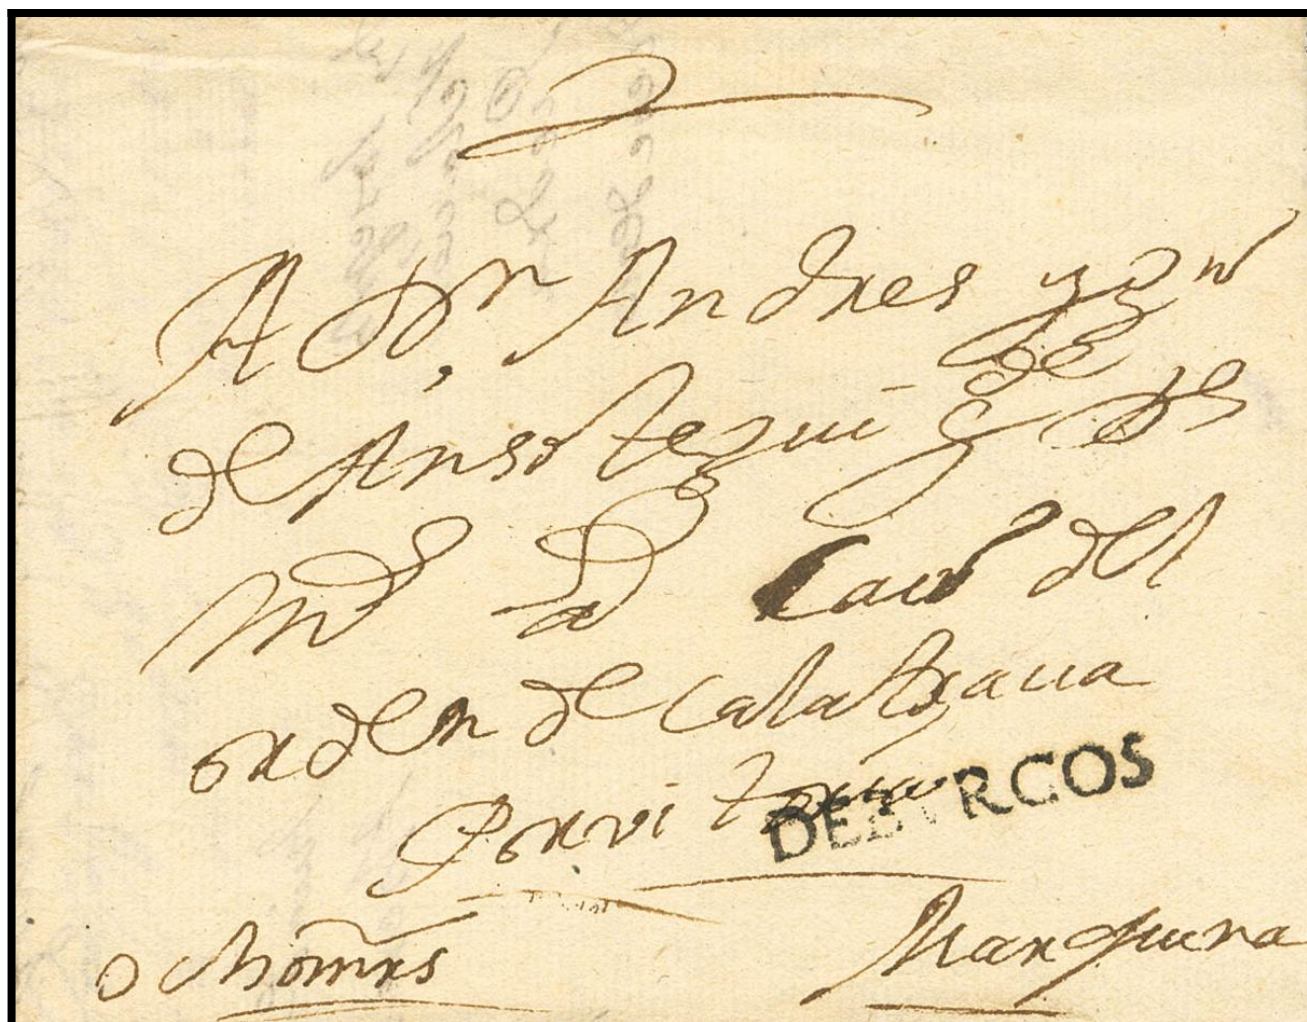 A Dn Andres
de Ansotegui gde Ds
md a Cauo del
orden de Calatraua
Por vitoria
DEBVRGOS
Marquina